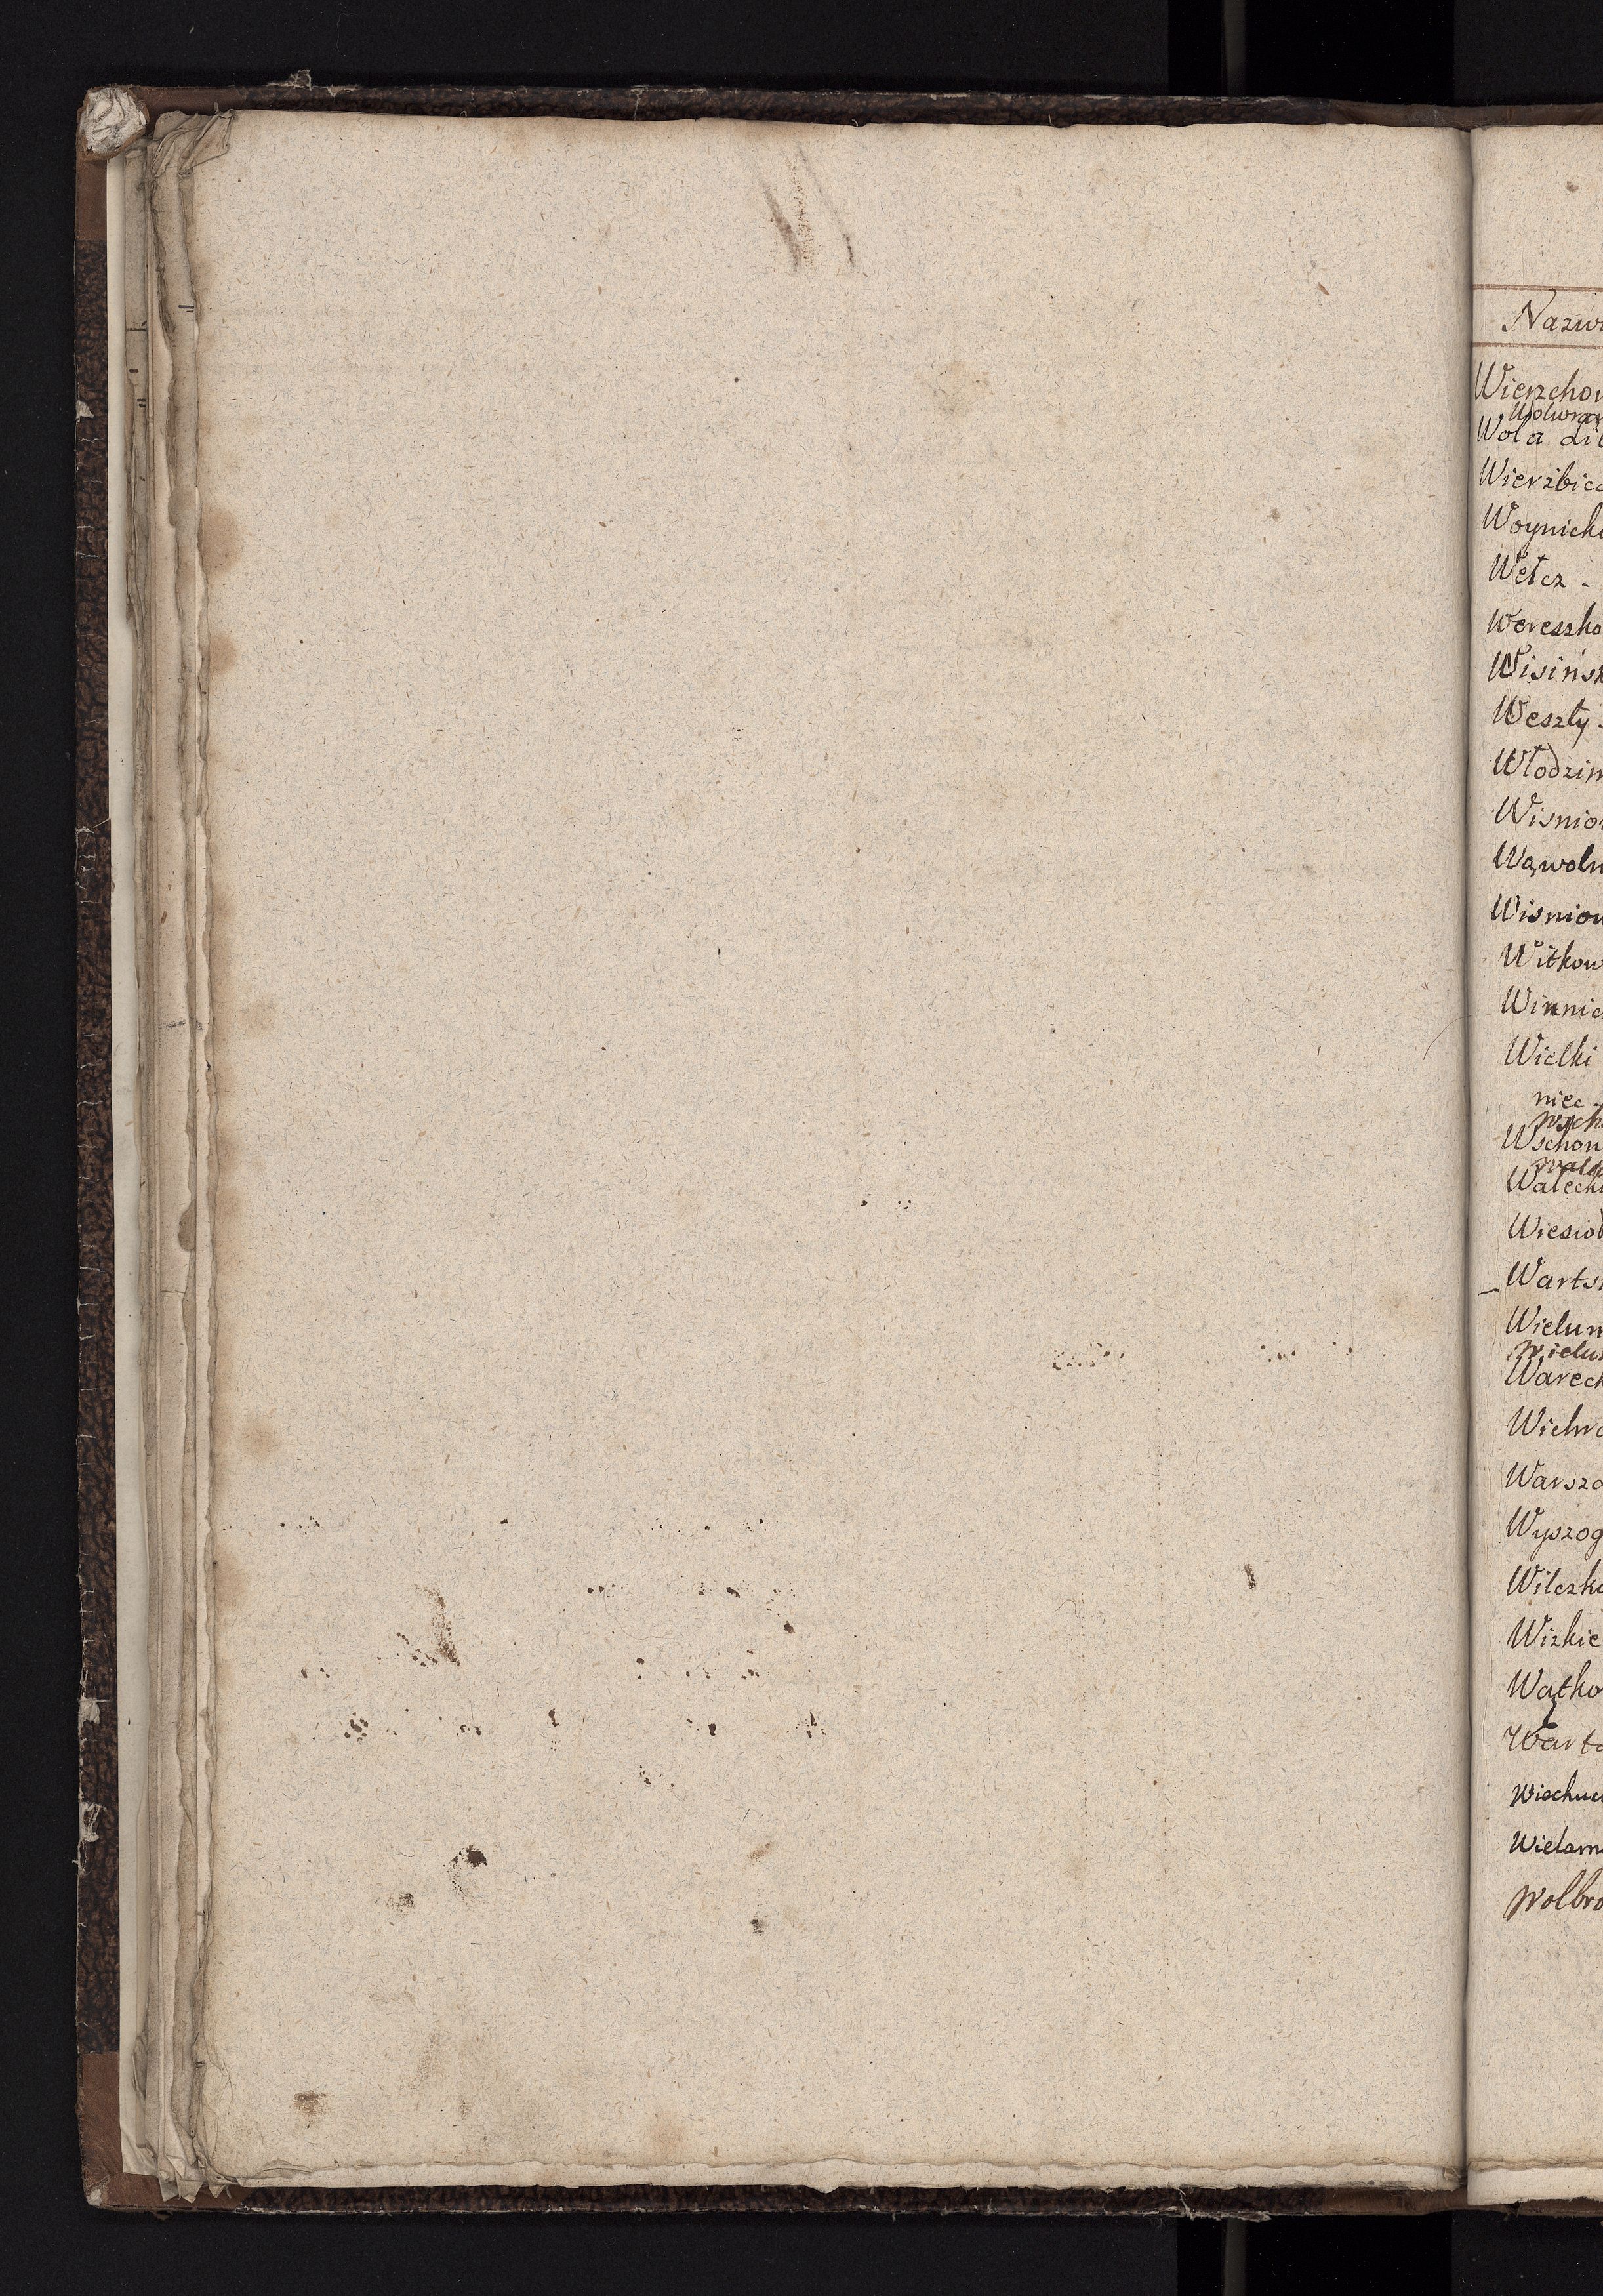 Nazw
Wierzchow
Wola
Wierzbic
Woynick
Wełcz -
Wereszko
Wisińsk
Weszły -
Włodzim
Wisniow
Wąwoln
Wisniow
Witkow
Winnic
Wielki
niec -
Wschow
Wałeck
Wiesioł
Warts
Wielun
Wielu
Wareck
Warsza
Wyszog
Wilczko
Wizkie
Wątko
Warta
Wiechuc
Wolbro